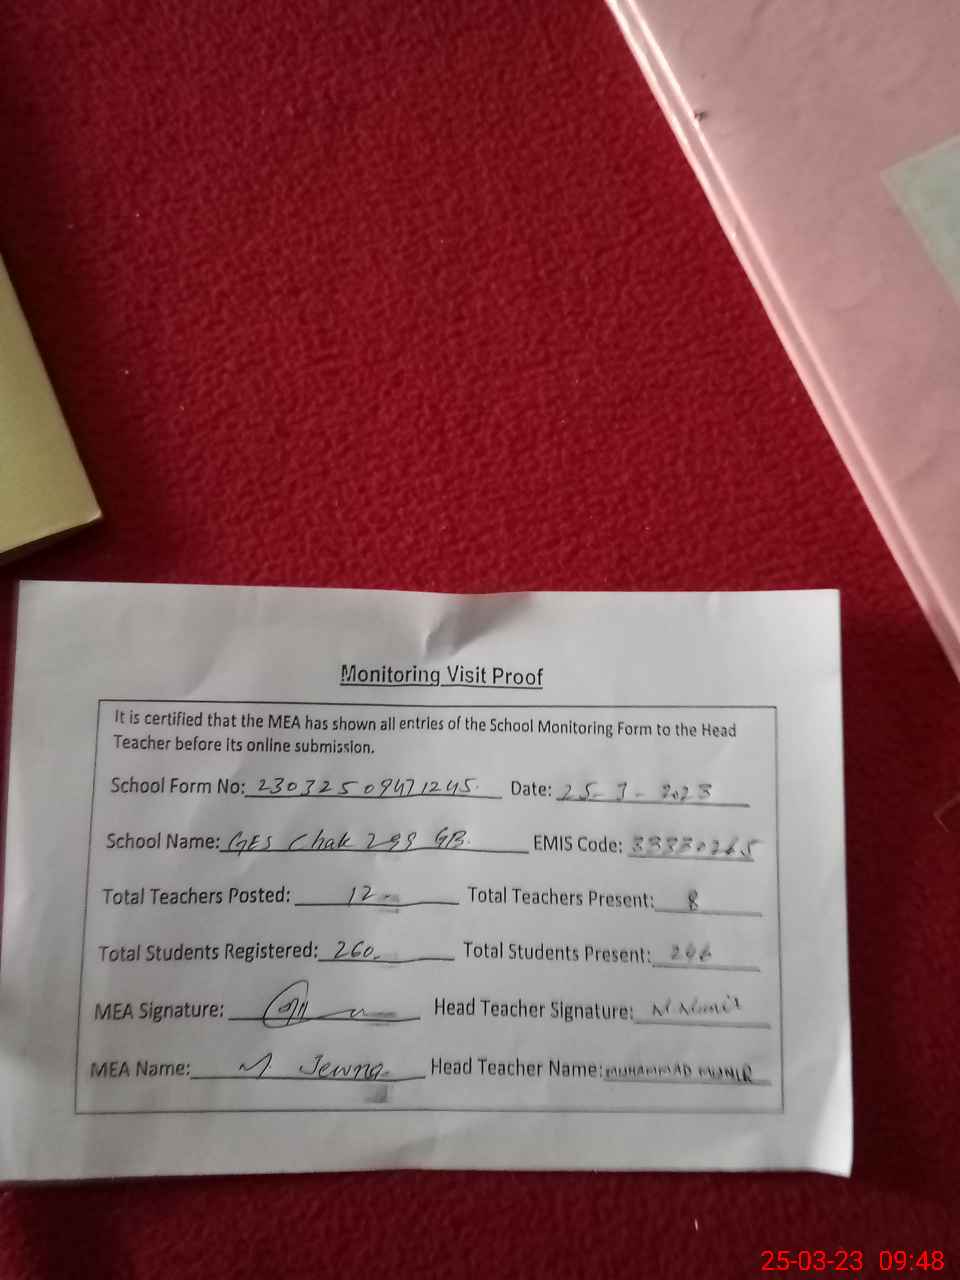 Monitoring Visit Proof
It is certified that the MEA has shown all entries of the School Monitoring Form to the Head
Teacher before its online submission.
School Form No: 23032509471245. Date: 25-3-2023
School Name: GES Chak 299 GB. EMIS Code: 33330265
Total Teachers Posted: 12 Total Teachers Present: 8
Total Students Registered: 260 Total Students Present:
MEA Signature: Head Teacher Signature: M Munir
MEA Name: M. Head Teacher Name: MUHAMMAD MUNIR
25-03-23 09:48